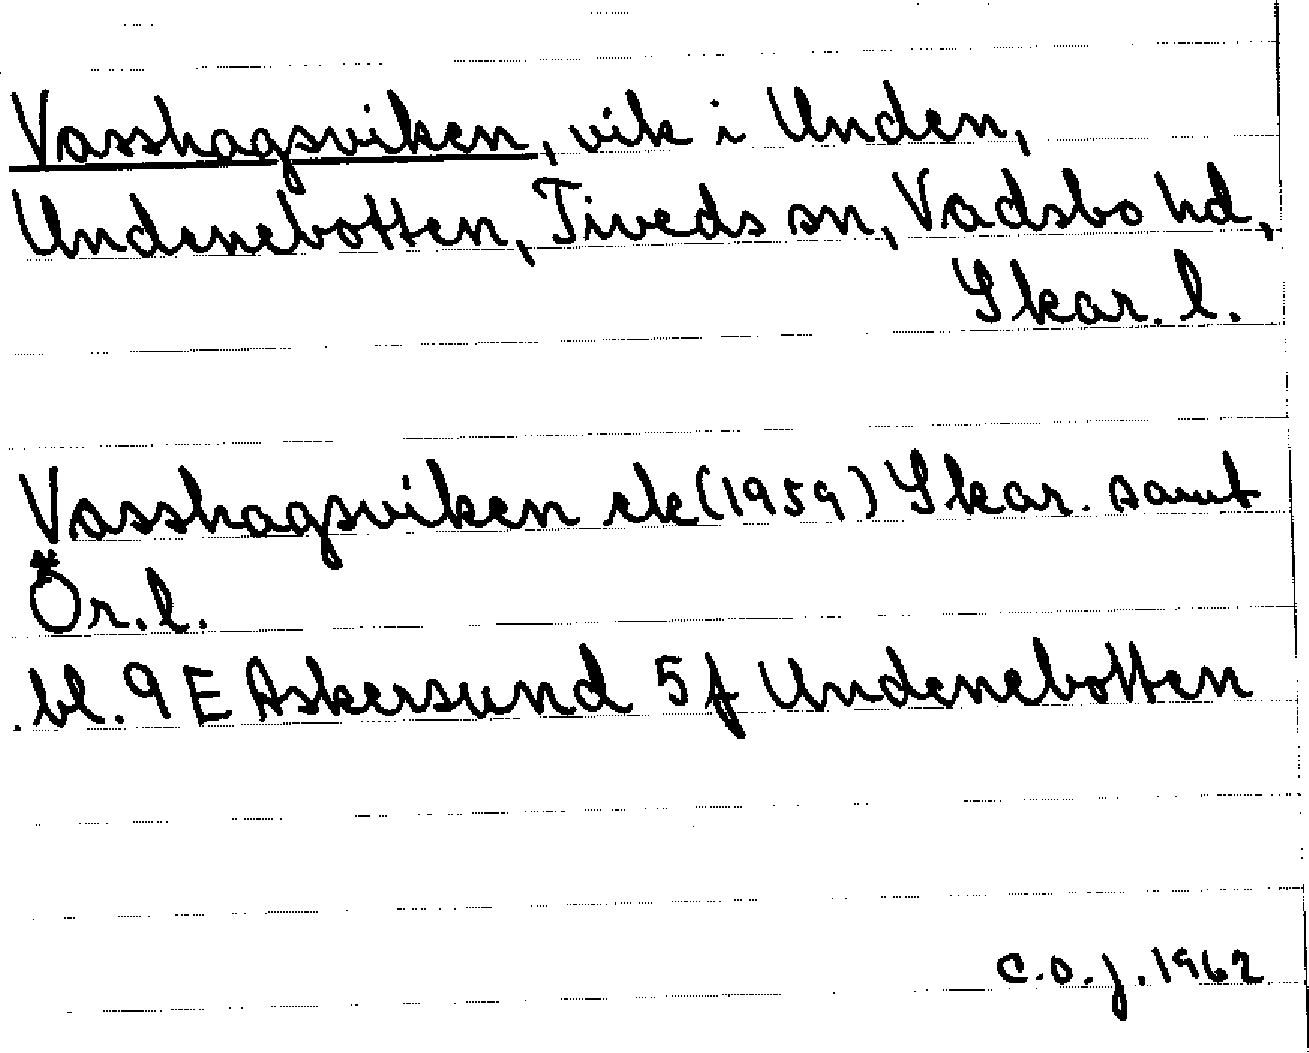 Vasshagsviken, vik i Unden,
Undenebotten, Tiveds sn, Vadsbo hd,
Skar. l.
Vasshagsviken ek (1959) Skar. samt
Ör. l.
bl. 9 E Askersund 5 f Undenebotten
C.O.J. 1962